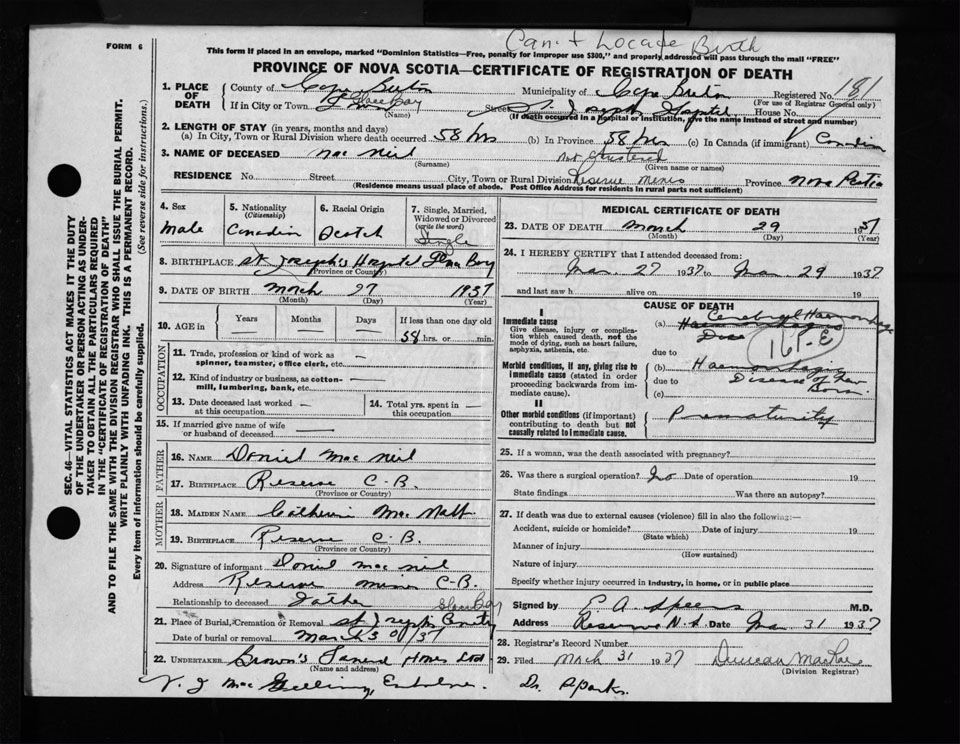 FORM 6
Can. + Locate Birth
This form if placed in an envelope, marked "Dominion Statistics—Free, penalty for improper use $300," and properly addressed will pass through the mail "FREE"
PROVINCE OF NOVA SCOTIA—CERTIFICATE OF REGISTRATION OF DEATH
1. PLACE OF DEATH
County of Cape Breton Municipality of Cape Breton Registered No. 181
(For use of Registrar General only)
If in City or Town Glace Bay Street St. Joseph's Hospital House No.
(Name) (If death occurred in a hospital or institution, give the name instead of street and number)
2. LENGTH OF STAY (in years, months and days)
(a) In City, Town or Rural Division where death occurred 58 hrs (b) In Province 58 hrs (c) In Canada (if immigrant) Canadian
3. NAME OF DECEASED Mac Neil Not Christened
(Surname) (Given name or names)
RESIDENCE No. Street City, Town or Rural Division Reserve Mines Province Nova Scotia
(Residence means usual place of abode. Post Office Address for residents in rural parts not sufficient)
4. Sex Male
5. Nationality (Citizenship) Canadian
6. Racial Origin Scotch
7. Single, Married, Widowed or Divorced (write the word) Single
8. BIRTHPLACE St Joseph's Hospital Glace Bay
(Province or County)
9. DATE OF BIRTH March 27 1937
(Month) (Day) (Year)
10. AGE in Years Months Days If less than one day old
58 hrs. or min.
OCCUPATION
11. Trade, profession or kind of work as spinner, teamster, office clerk, etc. —
12. Kind of industry or business, as cotton-mill, lumbering, bank, etc. —
13. Date deceased last worked at this occupation —
14. Total yrs. spent in this occupation —
15. If married give name of wife or husband of deceased —
FATHER
16. NAME Daniel Mac Neil
17. BIRTHPLACE Reserve C-B.
(Province or Country)
MOTHER
18. MAIDEN NAME Catherine Mac
19. BIRTHPLACE Reserve C.B.
(Province or Country)
20. Signature of informant Daniel Mac Neil
Address Reserve Mines C-B.
Relationship to deceased Father
21. Place of Burial, Cremation or Removal St Joseph's Glace Bay
Date of burial or removal March 30/37
22. UNDERTAKER Brown's Funeral Home Ltd
(Name and address)
MEDICAL CERTIFICATE OF DEATH
23. DATE OF DEATH March 29 1937
(Month) (Day) (Year)
24. I HEREBY CERTIFY that I attended deceased from:
Mar. 27 1937 to Mar. 29 1937
and last saw h alive on 19
CAUSE OF DEATH
I
Immediate cause
Give disease, injury or complication which caused death, not the mode of dying, such as heart failure, asphyxia, asthenia, etc.
(a) Cerebral Haemorrhage
due to
161-E
Morbid conditions, if any, giving rise to immediate cause (stated in order proceeding backwards from immediate cause).
(b) Haemorrhagic
due to Disease of New
(c) Born
II
Other morbid conditions (if important) contributing to death but not causally related to immediate cause.
Prematurity
25. If a woman, was the death associated with pregnancy?
26. Was there a surgical operation? No Date of operation 19
State findings Was there an autopsy?
27. If death was due to external causes (violence) fill in also the following:—
Accident, suicide or homicide? Date of injury 19
(State which)
Manner of injury
(How sustained)
Nature of injury
Specify whether injury occurred in industry, in home, or in public place
Signed by E A Speers M.D.
Address Reserve N.S. Date Mar. 31 1937
28. Registrar's Record Number
29. Filed March 31 1937 Duncan MacRae
(Division Registrar)
Mac Dr Sparks
SEC. 46—VITAL STATISTICS ACT MAKES IT THE DUTY
OF THE UNDERTAKER OR PERSON ACTING AS UNDER-
TAKER TO OBTAIN ALL THE PARTICULARS REQUIRED
IN THE "CERTIFICATE OF REGISTRATION OF DEATH"
AND TO FILE THE SAME WITH THE DIVISION REGISTRAR WHO SHALL ISSUE THE BURIAL PERMIT.
WRITE PLAINLY WITH UNFADING INK. THIS IS A PERMANENT RECORD.
Every item of information should be carefully supplied. (See reverse side for instructions.)